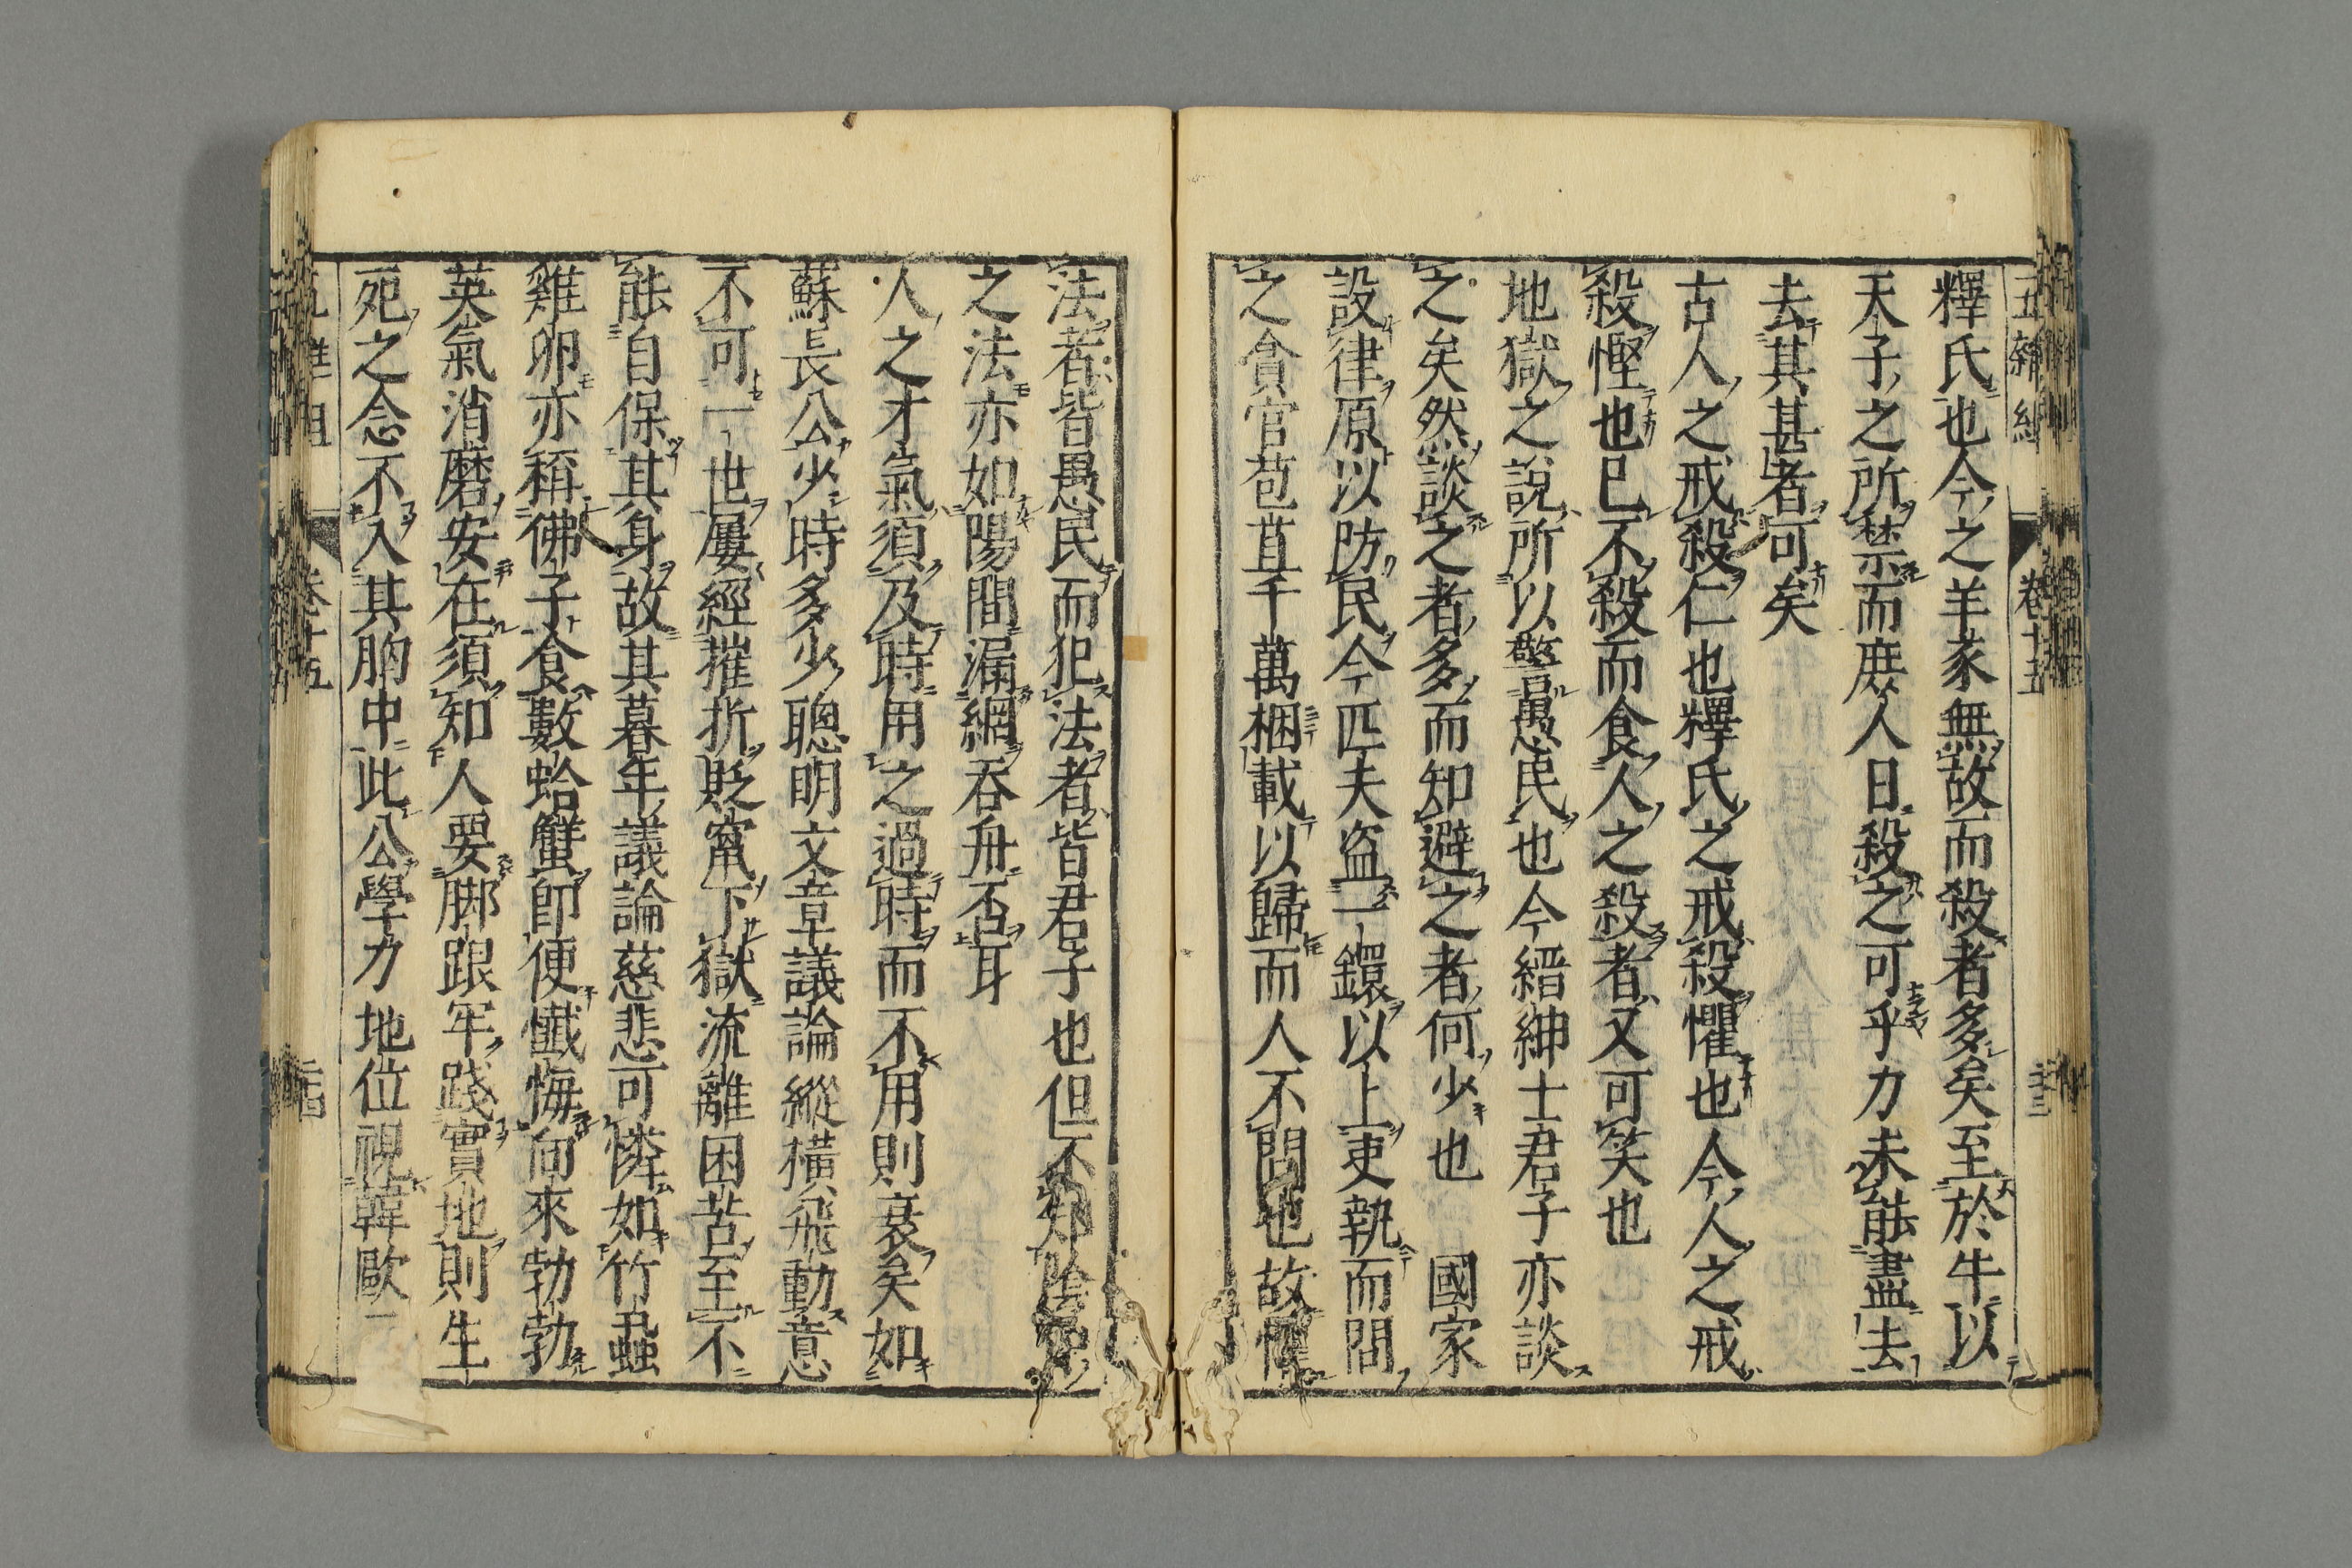 五雜組 卷十五 三十三
釋氏也今之羊豕無故而殺者多矣至於牛以
天子之所禁而庶人日殺之可乎力未能盡去
去其甚者可矣
古人之戒殺仁也釋氏之戒殺懼也今人之戒
殺慳也已不殺而食人之殺者又可笑也
地獄之說所以警愚民也今縉紳士君子亦談
之矣然談之者多而知避之者何少也 國家
設律原以防民今匹夫盜一鐶以上吏執而問
之貪官苞苴千萬梱載以歸而人不問也故懼
法者皆愚民而犯法者皆君子也但不知陰
之法亦如陽間漏網吞舟否耳
人之才氣須及時用之過時而不用則衰矣如
蘇長公少時多少聰明文章議論縱橫飛動意
不可一世屢經摧折貶竄下獄流離困苦至不
能自保其身故其暮年議論慈悲可憐如竹蝨
雞卵亦稱佛子食數蛤蟹卽便懺悔向來勃勃
英氣消磨安在須知人要脚跟牢踐實地則生
死之念不入其胸中此公學力地位視韓歐
卷十五 三十四